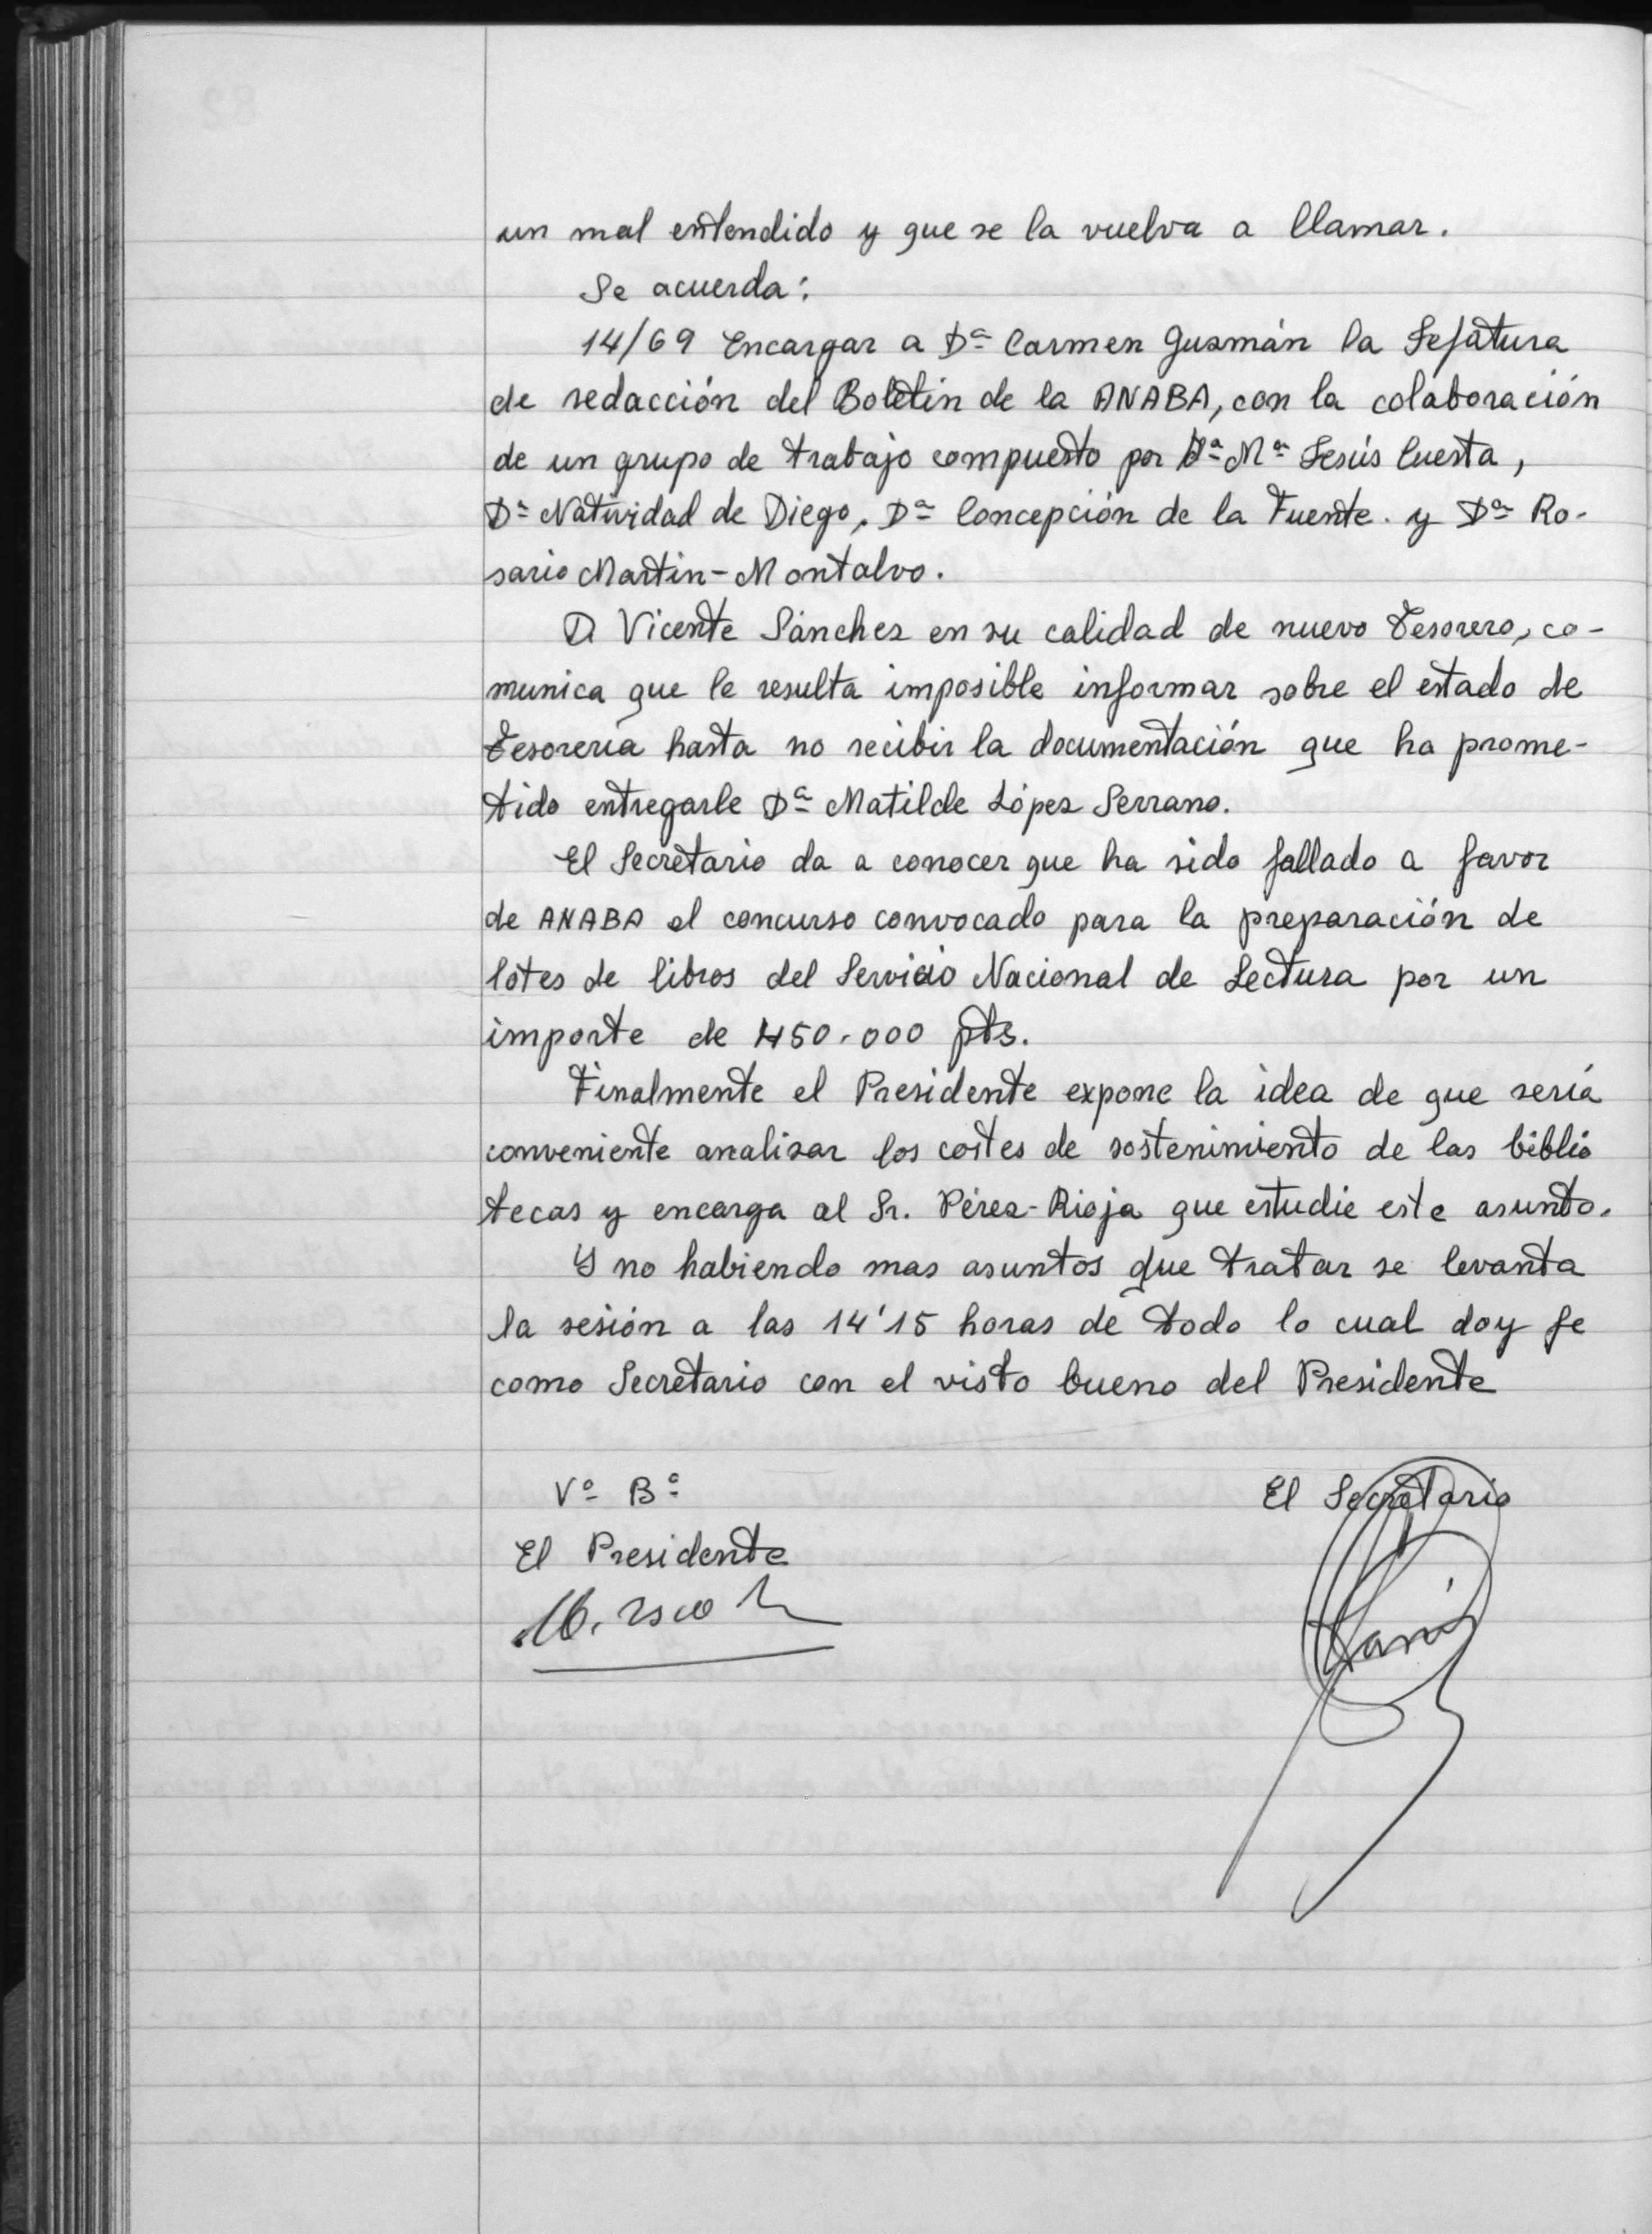 un mal entendido y que se la vuelva a llamar.
Se acuerda:
14/69 Encargar a Dª Carmen Guzmán la Jefatura
de redacción del Boletin de la ANABA, con la colaboración
de un grupo de trabajo compuesto por Dª Mª Jesús Cuesta,
Dª Natividad de Diego, Dª Concepción de la Fuente. y Dª Ro-
sario Martin-Montalvo.
D Vicente Sánchez en su calidad de nuevo Tesorero, co-
munica que le resulta imposible informar sobre el estado de
Tesorería hasta no recibir la documentación que ha prome-
tido entregarle Dª Matilde López Serrano.
El Secretario da a conocer que ha sido fallado a favor
de ANABA el concurso convocado para la preparación de
lotes de libros del Servicio Nacional de Lectura por un
importe de 450.000 pts.
Finalmente el Presidente expone la idea de que sería
conveniente analizar los costes de sostenimiento de las biblio
tecas y encarga al Sr. Pérez-Rioja que estudie este asunto.
Y no habiendo mas asuntos que tratar se levanta
la sesión a las 14'15 horas de todo lo cual doy fe
como Secretario con el visto bueno del Presidente
Vº Bº
El Secretario
El Presidente